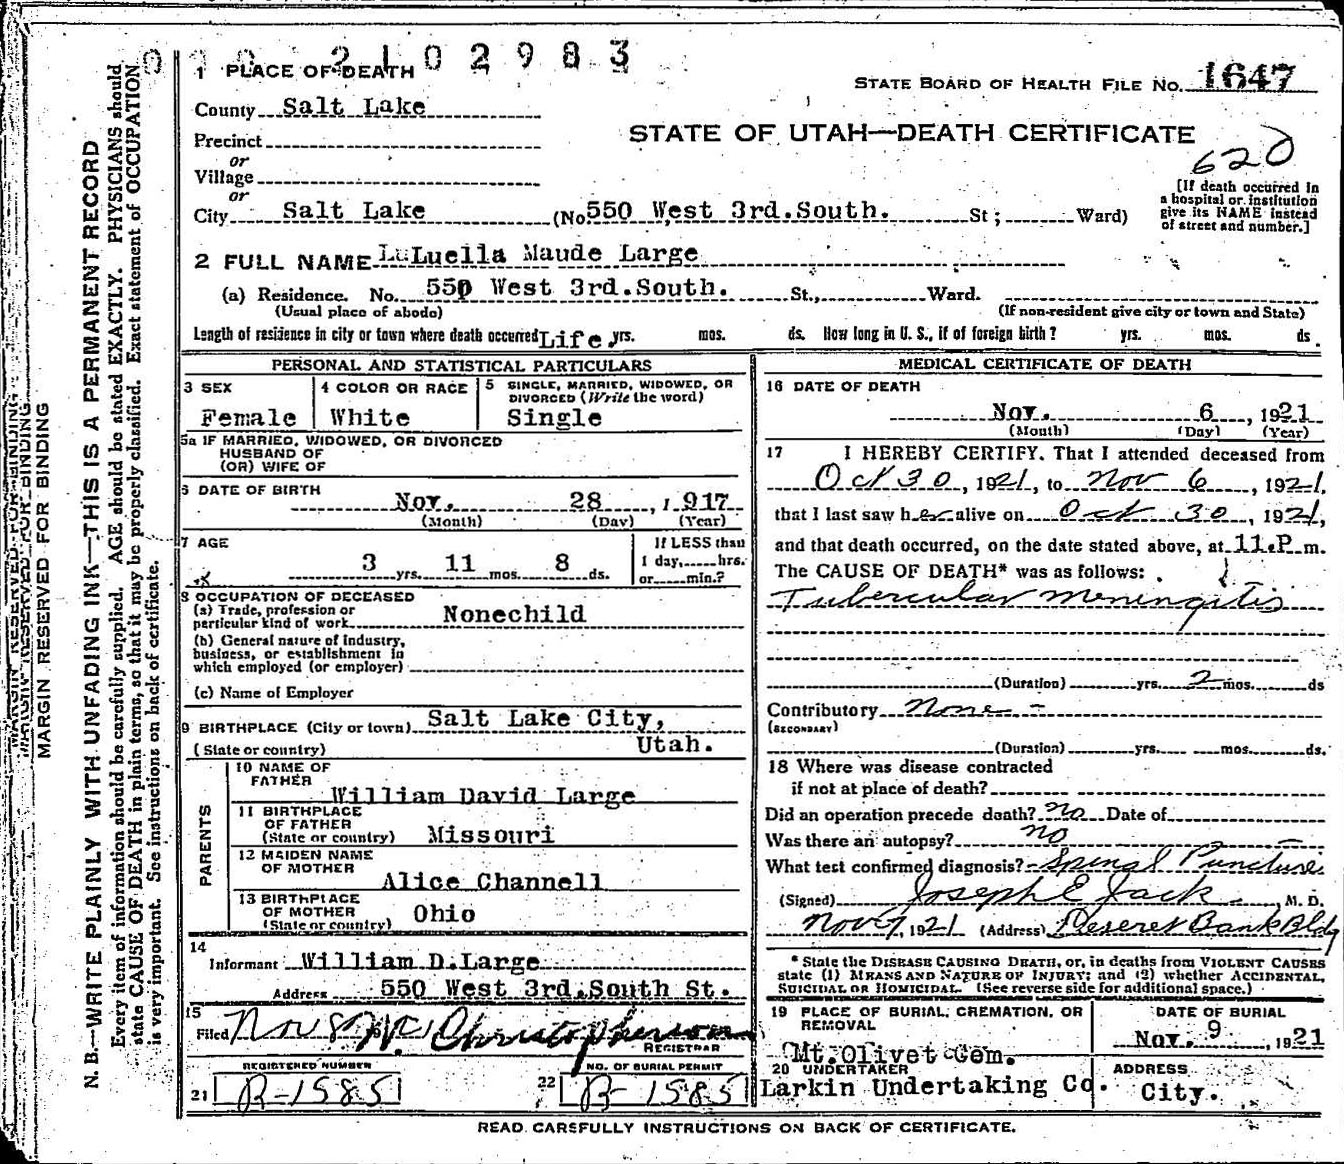 2102983
1 PLACE OF DEATH
STATE BOARD OF HEALTH FILE No. 1647
County Salt Lake
STATE OF UTAH—DEATH CERTIFICATE
Precinct
or
620
Village
or
[If death occurred in a hospital or institution give its NAME instead of street and number.]
City Salt Lake (No 550 West 3rd.South. St; Ward)
2 FULL NAME LuLuella Maude Large
(a) Residence. No. 550 West 3rd.South. St., Ward.
(Usual place of abode) (If non-resident give city or town and State)
Length of residence in city or town where death occurred Life, yrs. mos. ds. How long in U. S., if of foreign birth? yrs. mos. ds.
PERSONAL AND STATISTICAL PARTICULARS
3 SEX
Female
4 COLOR OR RACE
White
5 SINGLE, MARRIED, WIDOWED, OR DIVORCED (Write the word)
Single
5a IF MARRIED, WIDOWED, OR DIVORCED
HUSBAND OF
(OR) WIFE OF
6 DATE OF BIRTH
Nov. 28, 1917
(Month) (Day) (Year)
7 AGE
3 yrs. 11 mos. 8 ds.
If LESS than
1 day, hrs.
or min.?
8 OCCUPATION OF DECEASED
(a) Trade, profession or
particular kind of work Nonechild
(b) General nature of industry,
business, or establishment in
which employed (or employer)
(c) Name of Employer
9 BIRTHPLACE (City or town) Salt Lake City,
(State or country) Utah.
PARENTS
10 NAME OF
FATHER
William David Large
11 BIRTHPLACE
OF FATHER
(State or country) Missouri
12 MAIDEN NAME
OF MOTHER
Alice Channell
13 BIRTHPLACE
OF MOTHER
(State or country) Ohio
14
Informant William D.Large
Address 550 West 3rd.South St.
15
Filed Nov 8 Christopherson
REGISTRAR
REGISTERED NUMBER
21 B-1585
NO. OF BURIAL PERMIT
22 B-1585
MEDICAL CERTIFICATE OF DEATH
16 DATE OF DEATH
Nov. 6, 1921
(Month) (Day) (Year)
17 I HEREBY CERTIFY, That I attended deceased from
Oct 30, 1921, to Nov 6, 1921,
that I last saw her alive on Oct 30, 1921,
and that death occurred, on the date stated above, at 11.P m.
The CAUSE OF DEATH* was as follows:
Tubercular Meningitis
(Duration) yrs. 2 mos. ds
Contributory None -
(SECONDARY)
(Duration) yrs. mos. ds.
18 Where was disease contracted
if not at place of death?
Did an operation precede death? no Date of
Was there an autopsy? no
What test confirmed diagnosis? Spinal Puncture
(Signed) Joseph E Jack, M. D.
Nov 7, 1921 (Address) Deseret Bank Bldg
* State the DISEASE CAUSING DEATH, or, in deaths from VIOLENT CAUSES
state (1) MEANS AND NATURE OF INJURY; and (2) whether ACCIDENTAL,
SUICIDAL OR HOMICIDAL. (See reverse side for additional space.)
19 PLACE OF BURIAL, CREMATION, OR
REMOVAL
Mt.Olivet Cem.
DATE OF BURIAL
Nov. 9, 1921
20 UNDERTAKER
Larkin Undertaking Co.
ADDRESS
City.
READ CAREFULLY INSTRUCTIONS ON BACK OF CERTIFICATE.
MARGIN RESERVED FOR BINDING
N. B.—WRITE PLAINLY WITH UNFADING INK—THIS IS A PERMANENT RECORD
Every item of information should be carefully supplied. AGE should be stated EXACTLY. PHYSICIANS should
state CAUSE OF DEATH in plain terms, so that it may be properly classified. Exact statement of OCCUPATION
is very important. See instructions on back of certificate.